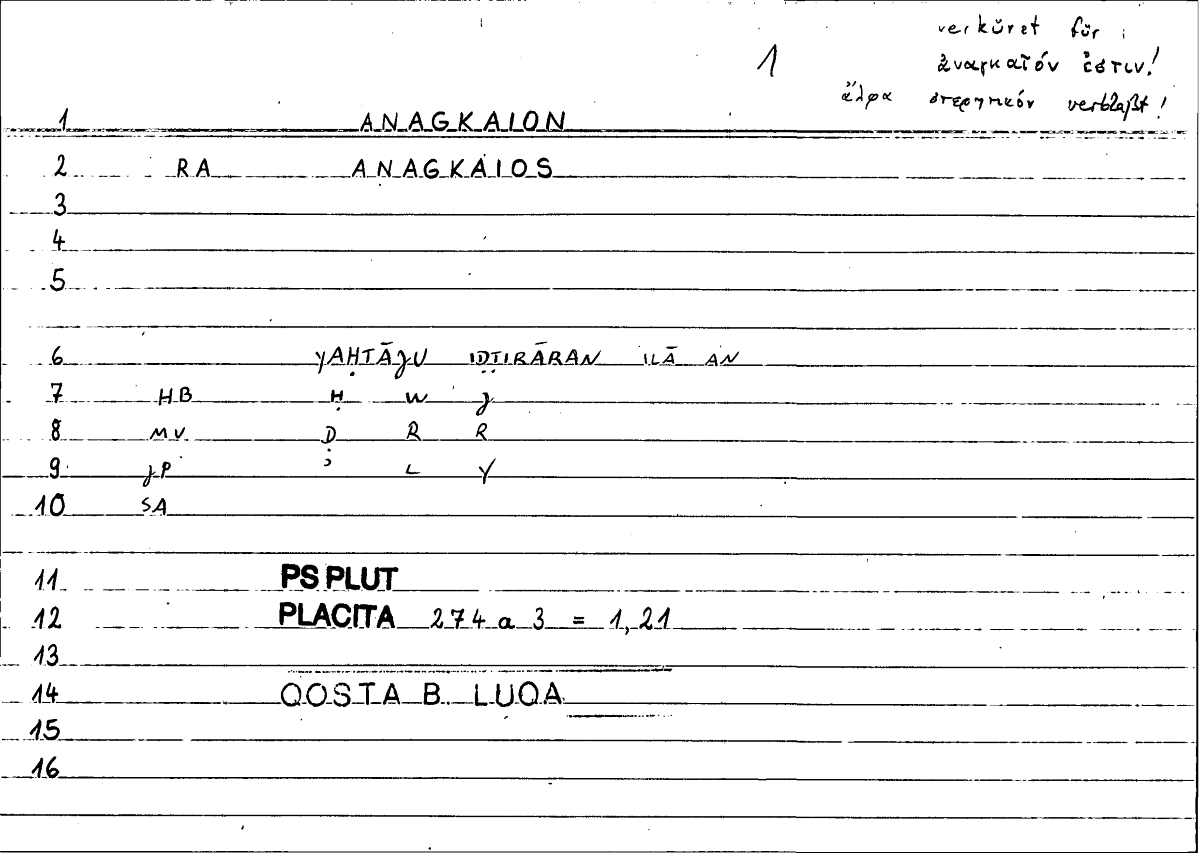 verkürzt für :
1 ἀναγκαῖόν ἐστιν!
ἄλφα στερητικόν verblaßt!
1 ANAGKAION
2 RA ANAGKAIOS
3
4
5
6 YAḤTĀǧU IḌṬIRĀRAN ILĀ AN
7 HB Ḥ W ǧ
8 MV Ḍ R R
9 JP ʾ L Y
10 SA
11 PS PLUT
12 PLACITA 274 a 3 = 1,21
13
14 QOSTA B. LUQA
15
16